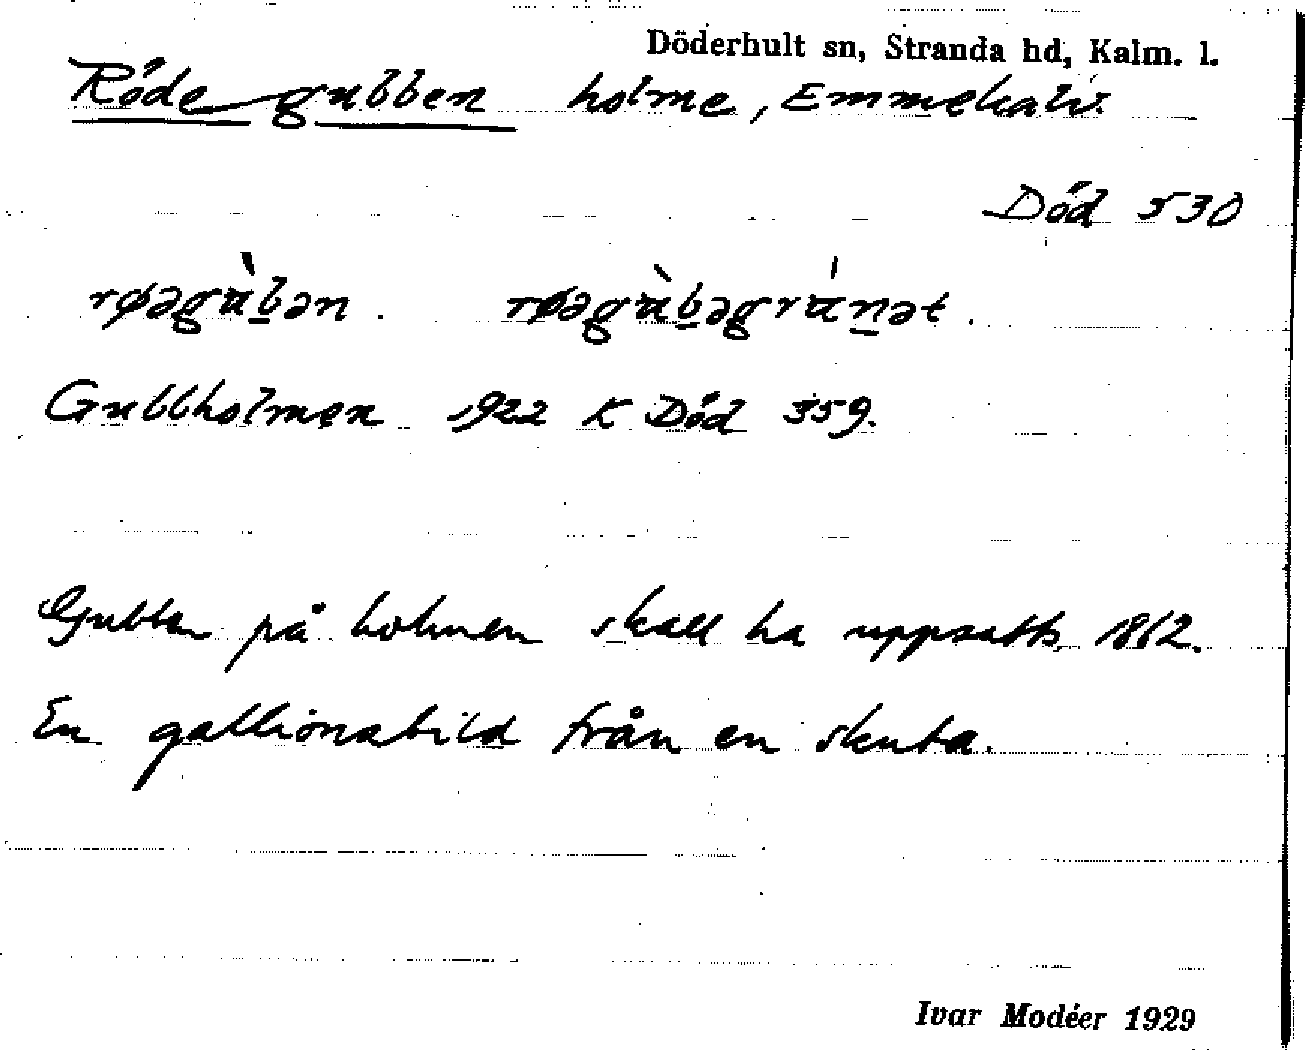 Döderhult sn, Stranda hd, Kalm. l.
Röde gubben holme, Emmekalv.
Död 530
røəgùbən. røəgùbəgrúnət.
Gubbholmen 1922 K Död 359.
Gubben på holmen skall ha uppsatts 1862.
En gallionsbild från en skuta.
Ivar Modéer 1929